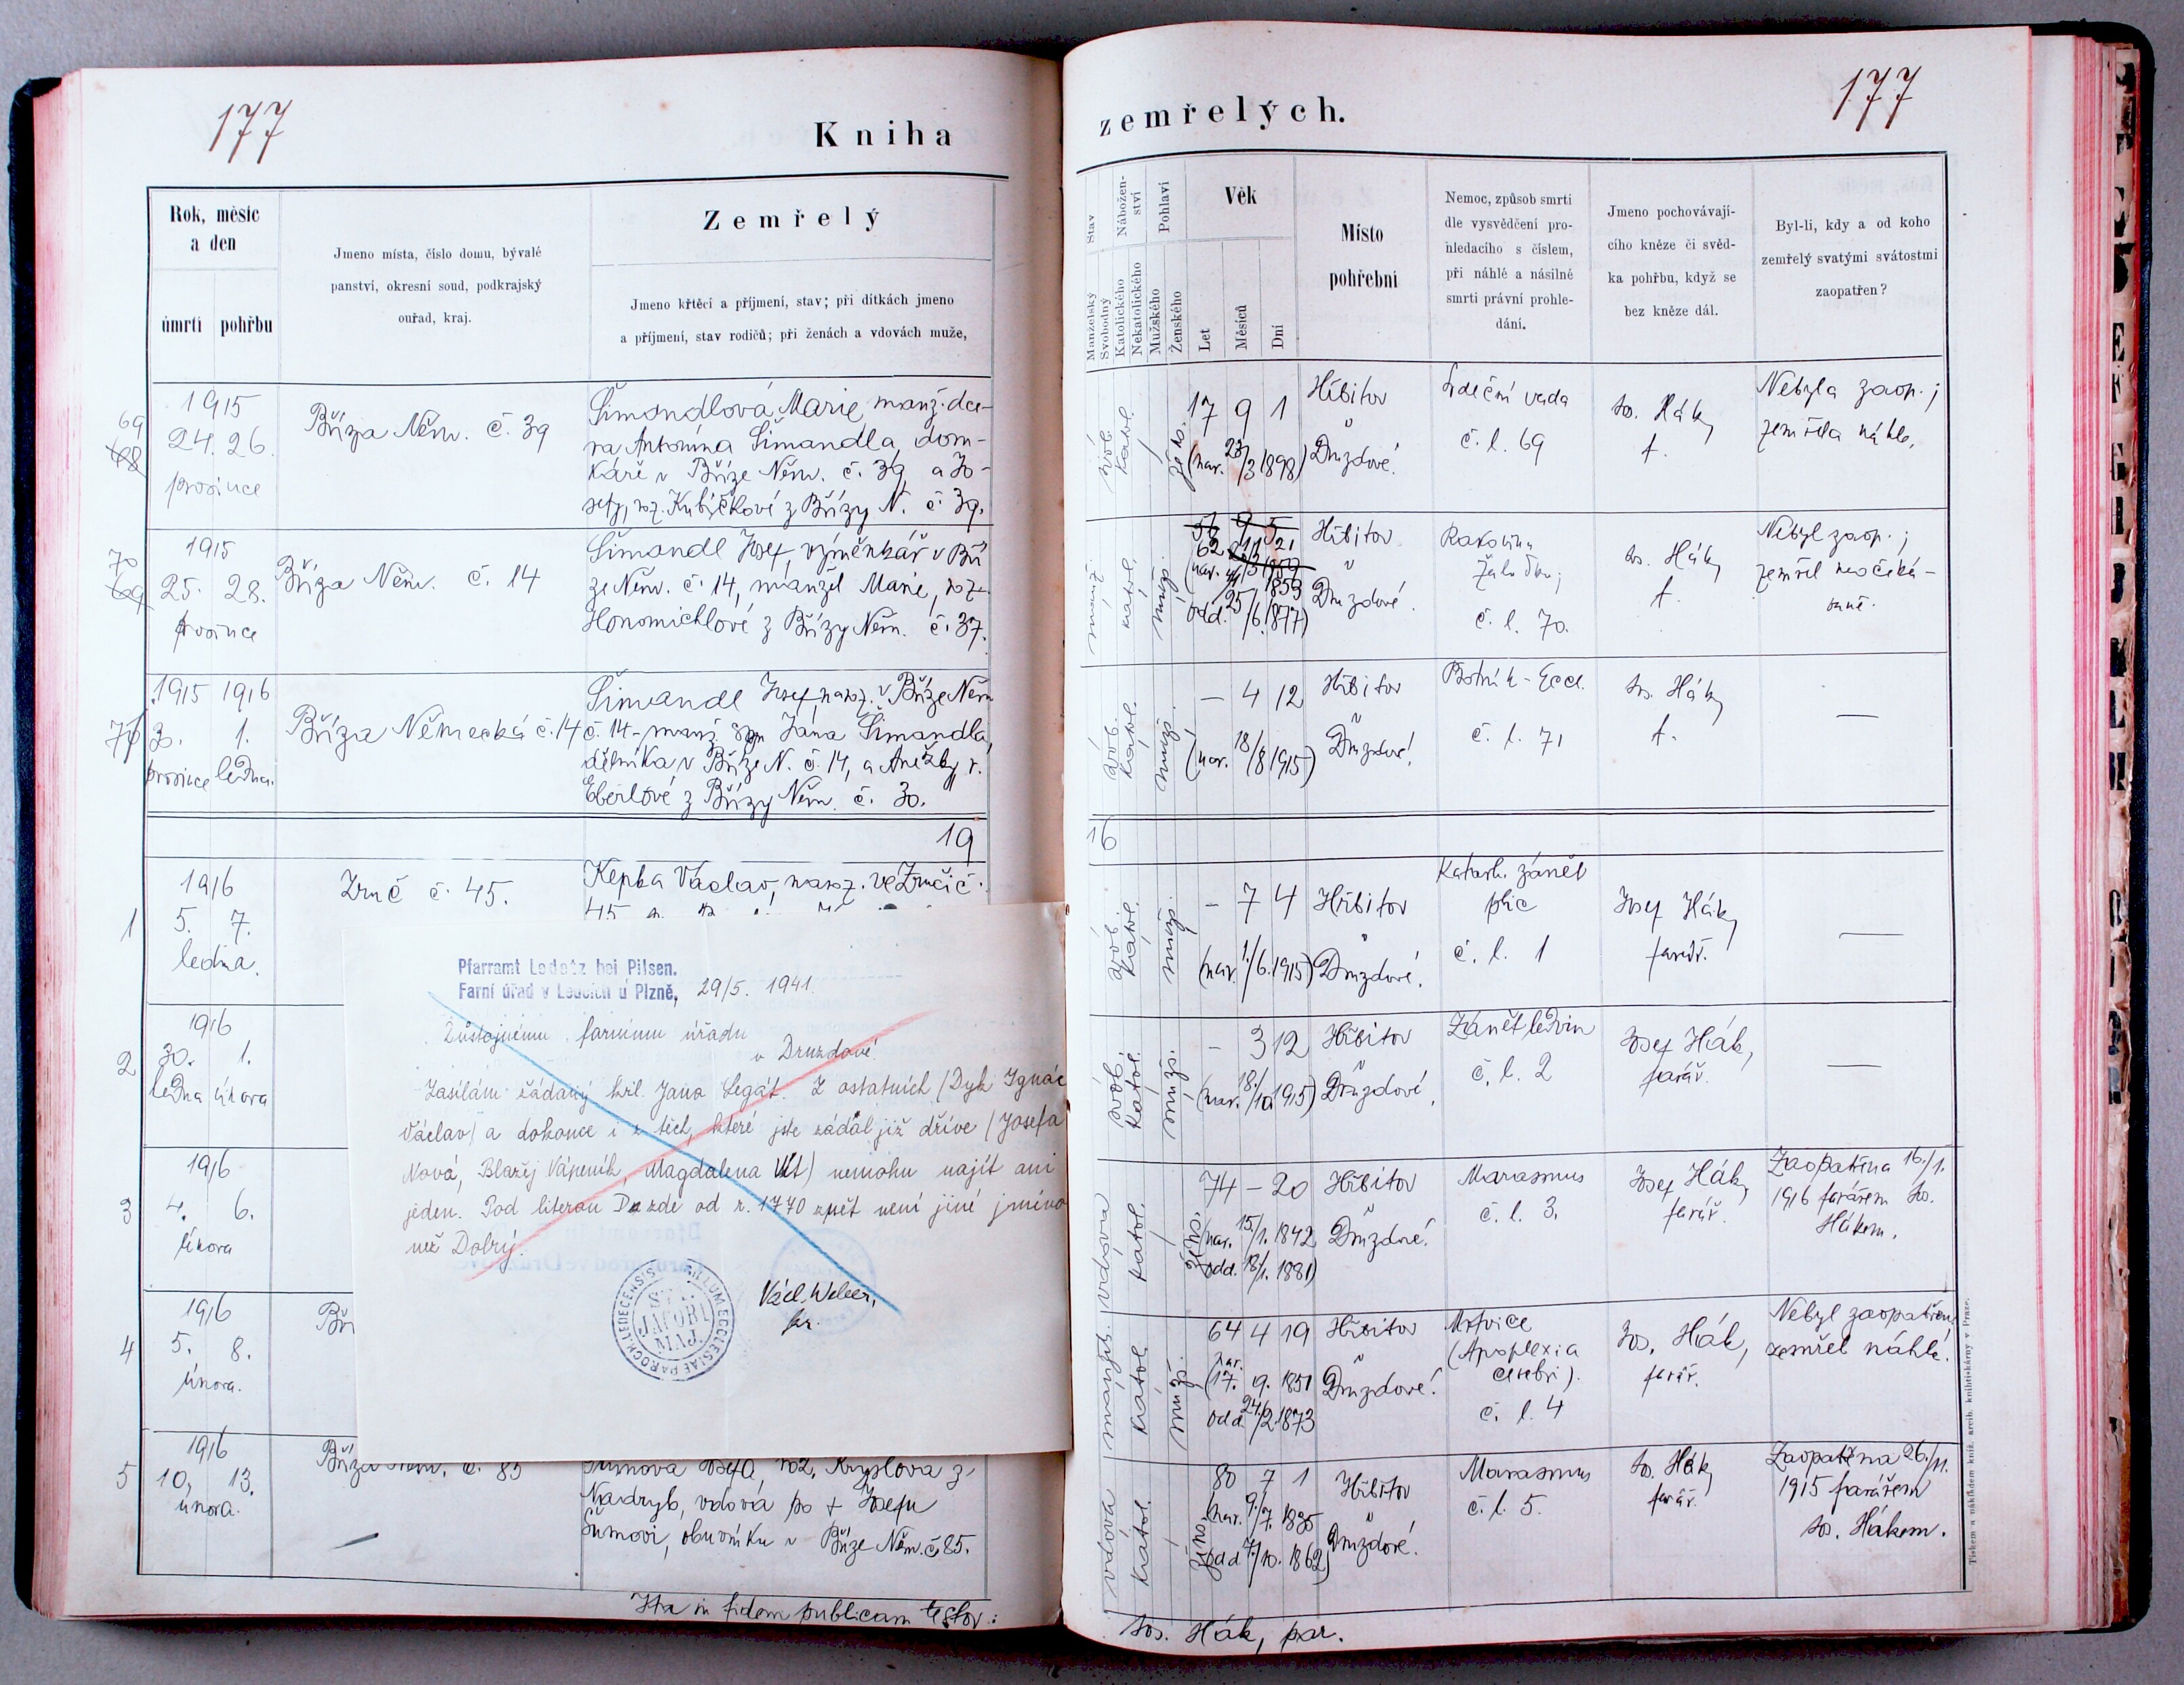 177
Kniha
Rok, měsíc
a den
úmrtí pohřbu
Jmeno místa, číslo domu, bývalé
panství, okresní soud, podkrajský
ouřad, kraj.
Zemřelý
Jmeno křtěcí a příjmení, stav; při dítkách jmeno
a příjmení, stav rodičů; při ženách a vdovách muže,
69
68
1915
24. 26.
prosince
Bříza Něm. č. 39
Šimandlová Marie, manž. dce-
ra Antonína Šimandla, dom-
káře v Bříze Něm. č. 39, a Jo-
sefy, roz. Kubíčkové z Břízy N. č. 39.
70
69
1915
25. 28.
prosince
Bříza Něm. č. 14
Šimandl Josef, výměnkář v Bří
ze Něm. č. 14, manžel Marie, roz.
Honomichlové z Břízy Něm. č. 37.
71
1915 1916
30. 1.
prosince ledna.
Bříza Německá č. 14
Šimandl Josef, naroz. v Bříze Něm
č. 14 - manž. syn Jana Šimandla,
dělníka v Bříze N. č. 14, a Anežky, r.
Eberlové z Břízy Něm. č. 30.
19
1
1916
5. 7.
ledna.
Zruč č. 45.
Kepka Václav, naroz. ve Zruči č.
45
2
1916
30. 1.
ledna února
3
1916
4. 6.
února
4
1916
5. 8.
února.
Bří
5
1916
10. 13.
února.
Bříza Něm. č. 85
Šůmová Josefa, roz. Kryslova z
Nadryb, vdova po + Josefu
Šůmovi, obuvníku v Bříze Něm. č 85.
Ita in fidem publicam testor:
Pfarramt Ledetz bei Pilsen.
Farní úřad v Ledcích u Plzně, 29/5. 1941.
Důstojnému farnímu úřadu
v Druzdové.
Zasílám žádaný křl. Jana Legát. Z ostatních (Dyk Ignác
Václav) a dokonce i z těch, které jste žádal již dříve (Josefa
Nová, Blažej Vápeník, Magdalena Vít) nemohu najít ani
jeden. Pod literou D zde od r. 1770 zpět není jiné jméno
než Dobrý.
Václ. Weber,
far.
SIGILLUM ECCLESIAE PAROCH. LEDECENSIS
JACOBI
MAJ.
177
zemřelých.
Stav
Manželský
Svobodný
Nábožen-
ství
Katolického
Nekatolického
Pohlaví
Mužského
Ženského
Věk
Let
Měsíců
Dní
Místo
pohřební
Nemoc, způsob smrti
dle vysvědčení pro-
hledacího s číslem,
při náhlé a násilné
smrti právní prohle-
dání.
Jmeno pochovávají-
cího kněze či svěd-
ka pohřbu, když se
bez kněze dál.
Byl-li, kdy a od koho
zemřelý svatými svátostmi
zaopatřen?
svob.
katol.
žens.
17 9 1
(nar. 23/3 1898)
Hřbitov
Druzdové.
Srdeční vada
č. l. 69
Jos. Hák,
f.
Nebyla zaop.;
zemřela náhle.
manž.
katol.
mužs.
56 9 5
62 11 21
1859
1853
odd. 25/6. 1877)
Hřbitov
Druzdové.
Rakovina
žaludku;
č. l. 70.
Jos. Hák,
f.
Nebyl zaop.;
zemřel neočeká-
vaně.
svob.
katol.
mužs.
— 4 12
(nar. 18/8 1915)
Hřbitov
Druzdové.
Psotník - Eccl.
č. l. 71
Jos. Hák,
f.
—
svob.
katol.
mužs.
– 7 4
(nar. 1./6. 1915)
Hřbitov
Druzdové.
Katarh. zánět
plic
č. l. 1
Josef Hák,
farář.
—
svob.
katol.
mužs.
– 3 12
(nar. 18./10. 1915)
Hřbitov
Druzdové,
Zánět ledvin
č. l. 2
Josef Hák,
farář.
—
vdova
katol.
žens.
74 – 20
(nar. 15/1. 1842
odd. 18/1. 1881)
Hřbitov
Druzdové.
Marasmus
č. l. 3.
Josef Hák,
farář.
Zaopatřena 16./1.
1916 farářem Jos.
Hákem.
manžel.
katol.
mužs.
64 4 19
nar.
(17. 9. 1851
odd. 24/2. 1873
Hřbitov
Druzdové.
Mrtvice
(Apoplexia
cerebri).
č. l. 4
Jos. Hák,
farář.
Nebyl zaopatřen,
zemřel náhle.
vdova
katol.
žens.
80 7 1
(nar. 9./7. 1835
odd. 7/10. 1862)
Hřbitov
Druzdové.
Marasmus
č. l. 5.
Jos. Hák,
farář.
Zaopatřena 26./11.
1915 farářem
Jos. Hákem.
Jos. Hák, par.
Tiskem a nákladem kníž. arcib. knihtiskárny v Praze.